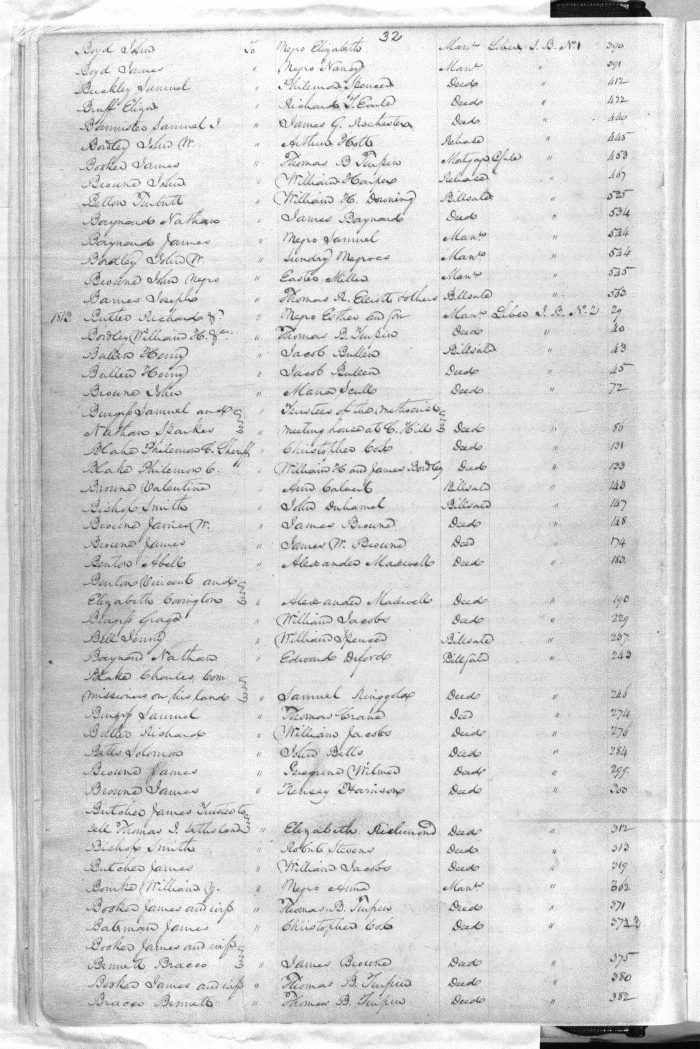 32
Boyd John To Negro Elizabeth Man.t Liber J. B. No 1 390
Boyd James " Negro Nancy Man.t " 391
Buckley Samuel " Philemon Spencer Deed " 412
Bruff Eliza " Richard T. Earle Deed " 422
Bannister Samuel J " James G. Rochester Deed " 440
Bordley John W. " Arthur Holt Release " 445
Booker James " Thomas B Turpin Mortgage " 453
Browne John " William Harper Release " 467
Betton Turbutt " William H. Downing Billsale " 525
Baynard Nathan " James Baynard Deed " 534
Baynard James " Negro Samuel Man.t " 544
Bordley John W. " Sunday Negroes Man.t " 544
Browne John Negro " Easter Miller Man.t " 545
Barnes Joseph " Thomas R. Elliott & others Billsale " 553
1813 Butler Richard &c " Negro Esther and for Man.t Liber J. B. No. 2 29
Bordley William H. &c. " Thomas B. Turpin Deed " 40
Bullen Henry " Jacob Bullen Billsale " 43
Bullen Henry " Jacob Bullen Deed " 45
Browne John " Maria Scull Deed " 72
Burgess Samuel and " Trustees of the methodist
Nathan Sparkes " meeting house at C. Hill Deed " 80
Blake Philemon C. Sheriff " Christopher Cox Deed " 131
Blake Philemon C. " William H and James Bordley Deed " 133
Browne Valentine " Ann Calvert Billsale " 143
Bishop Smith " John Duhamel Billsale " 147
Browne James W. " James Browne Deed " 148
Browne James " James W. Browne Deed " 174
Benton Abell " Alexander Maxwell Deed " 183
Benton Vincent and
Elizabeth Covington " Alexander Maxwell Deed " 190
Burgess " William Jacobs Deed " 229
Bell Jenny " William Spencer Billsale " 237
Baynard Nathan " Edward Oxford Billsale " 243
Blake Charles, Com
missioners on his land " Samuel Ringgold Deed " 246
Burgess Samuel " Thomas Crane Deed " 274
Butler Richard " William Jacobs Deed " 276
Betts Solomon " John Betts Deed " 284
Browne James " Peregrine Wilmer Deed " 299
Browne James " Kensey Harrison Deed " 300
Butcher James Trustee to
sell Thomas J. Seths land " Elizabeth Richmond Deed " 312
Bishop Smith " Robert Stevens Deed " 313
Butcher James " William Jacobs Deed " 319
Bourke William Y. " Negro Ann Man.t " 362
Booker James and wife " Thomas B. Turpin Deed " 371
Bateman James " Christopher Cox Deed " 372
Booker James and wife
Bennett Bracco " James Browne Deed " 375
Booker James and wife " Thomas B. Turpin Deed " 380
Bracco Bennett " Thomas B. Turpin Deed " 382